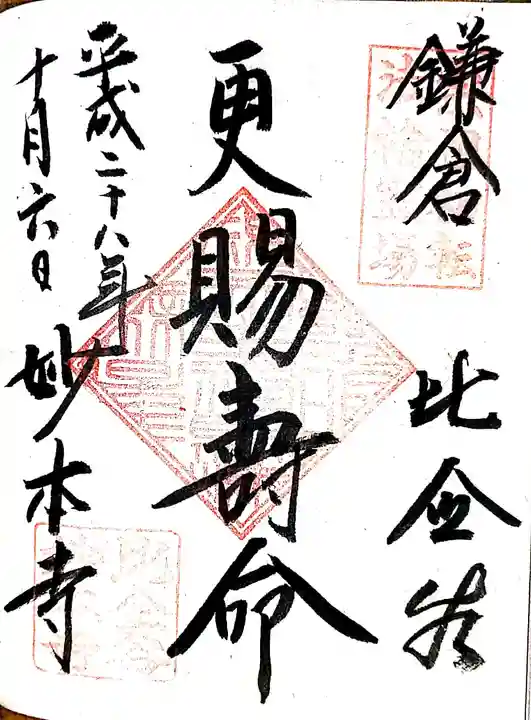 鎌倉 比企谷
更賜壽命
平成二十八年
十月六日 妙本寺